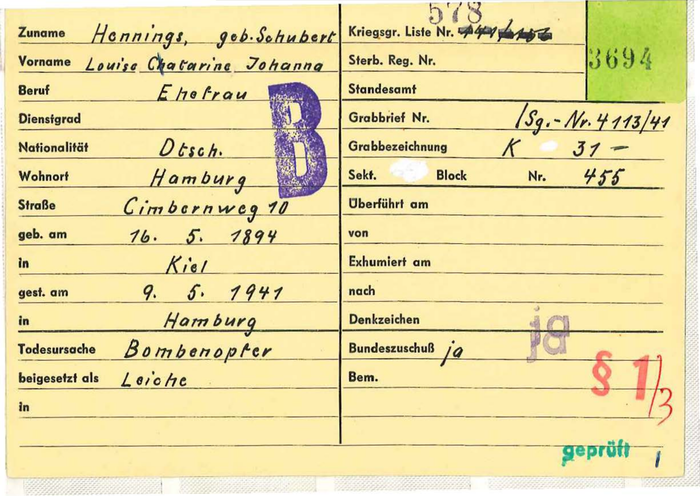 Zuname Hennings, geb. Schubert
Vorname Louise Chatarine Johanna
Beruf Ehefrau
Dienstgrad
Nationalität Dtsch.
Wohnort Hamburg
Straße Cimbernweg 10
geb. am 16. 5. 1894
in Kiel
gest. am 9. 5. 1941
in Hamburg
Todesursache Bombenopfer
beigesetzt als Leiche
in
B
578
Kriegsgr. Liste Nr.
Sterb. Reg. Nr.
Standesamt
3694
Grabbrief Nr. /Sg.-Nr. 4113/41
Grabbezeichnung K 31 -
Sekt. Block Nr. 455
Überführt am
von
Exhumiert am
nach
Denkzeichen ja
Bundeszuschuß ja
Bem.
§ 1/3
geprüft